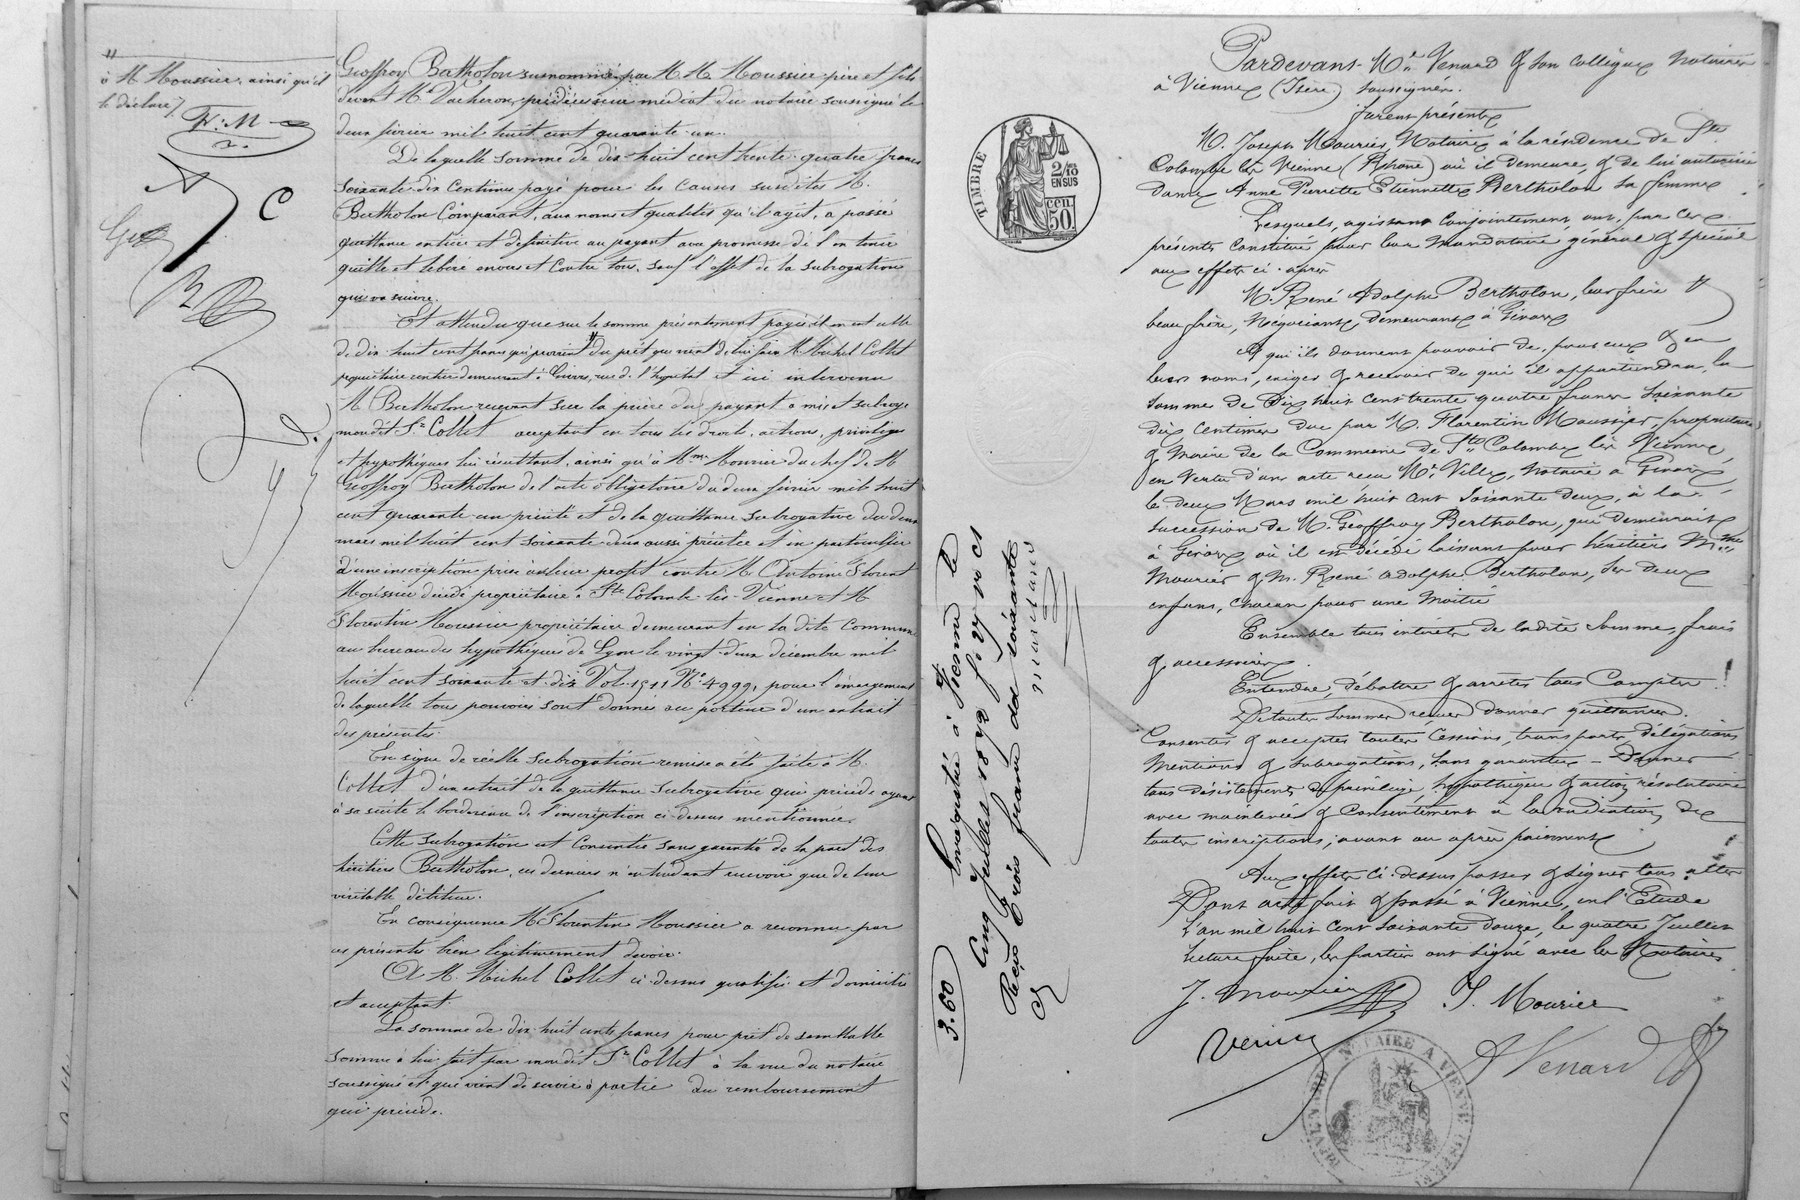 à M. Moussier, ainsi qu'il
le déclare /.
F. M.
C
Geoffroy Bertholon susnommé par M.M. Moussier père et fils
devant Me Vacheron, prédécesseur médiat du notaire soussigné le
deux février mil huit cent quarante-un.
De laquelle somme de dix-huit cent trente-quatre francs
soixante-dix centimes payé pour les causes susdites M.
Bertholon Comparant, aux noms et qualités qu'il agit, a passé
quittance entière et définitive au payant avec promesse de l'en tenir
quitte et libéré envers et contre tous, sauf l'effet de la subrogation
qui va suivre.
Et attendu que sur la somme présentement payée il en est celle
de dix-huit cent francs qui provient du prêt que vient de lui faire M. Michel Collet
propriétaire rentier demeurant à Givors, rue de l'hôpital et ici intervenu
M. Bertholon recevant sur la prière du payant a mis et subrogé
mondit Sr Collet acceptant en tous les droits, actions, privilèges
et hypothèques lui résultant, ainsi qu'à Mme Mourier du chef de M.
Geoffroy Bertholon de l'acte obligatoire du deux février mil huit
cent quarante-un précité et de la quittance subrogative du deux
mars mil huit cent soixante-deux aussi précitée et en particulier
d'une inscription prise à leur profit contre M. Antoine Florent
Moussier décédé propriétaire à Ste Colombe-lès-Vienne et M.
Florentin Moussier propriétaire demeurant en la dite Commune
au bureau des hypothèques de Lyon le vingt-deux décembre mil
huit cent soixante et dix Vol. 1511 No 4999, pour l'émargement
de laquelle tous pouvoirs sont donnés au porteur d'un extrait
des présentes.
En signe de réelle subrogation remise a été faite à M.
Collet d'un extrait de la quittance subrogative qui précède ayant
à sa suite le bordereau de l'inscription ci-dessus mentionnée.
Cette subrogation est consentie sans garantie de la part des
héritiers Bertholon, ces derniers n'entendant recevoir que de leur
véritable débiteur.
En conséquence M. Florentin Moussier a reconnu par
ces présentes bien légitimement devoir.
A M. Michel Collet ci-dessus qualifié et domicilié
et acceptant.
La somme de dix-huit cents francs pour prêt de semblable
somme à lui fait par mondit Sr Collet à la vue du notaire
soussigné et qui vient de servir à partie du remboursement
qui précède.
Pardevant Me Venard & son collègue Notaires
à Vienne (Isère) soussignés.
furent présents
M. Joseph Mourier, Notaire à la résidence de Ste
Colombe lès Vienne (Rhône) où il demeure, & de lui autorisée
dame Anne Pierrette Etiennette Bertholon sa femme
Lesquels, agissant conjointement, ont, par ces
présentes constitué pour leur mandataire général & spécial
aux effets ci-après
M. René Adolphe Bertholon, leur frère &
beau frère, Négociant, demeurant à Givors
A qui ils donnent pouvoir de, pour eux & en
leurs noms, exiger & recevoir de qui il appartiendra, la
somme de Dix huit cent trente quatre francs soixante
dix centimes due par M. Florentin Moussier, propriétaire
& Maire de la Commune de Ste Colombe lès Vienne,
en vertu d'un acte reçu Me Ville, Notaire à Givors,
le deux Mars mil huit cent soixante deux, à la
succession de M. Geoffroy Bertholon, qui demeurait
à Givors où il est décédé laissant pour héritiers Mme
Mourier & M. René Adolphe Bertholon, ses deux
enfans, chacun pour une moitié
Ensemble tous intérêts de ladite somme, frais
& accessoires.
Entendre, débattre & arrêter tous Comptes
De toutes sommes reçues donner quittances.
Consentir & accepter toutes Cessions, transports, délégations
Mentions & subrogations, sans garantie - Donner
tous désistements de privilège, hypothèque & action résolutoire
avec mainlevée & consentement à la radiation de
toutes inscriptions, avant ou après paiement
Aux effets ci-dessus passer & signer tous actes
Dont acte fait & passé à Vienne, en l'Etude
L'an mil huit cent soixante douze, le quatre Juillet
Lecture faite, les parties ont signé avec les Notaires
J. Mourier
J. Mourier
A Venard
TIMBRE
2/10
EN SUS
50 cen
Enregistré à Vienne le
Cinq Juillet 1872 fo 27 vo c1
Reçu trois francs dix soixante
3.60
NOTAIRE A VIENNE (ISÈRE)